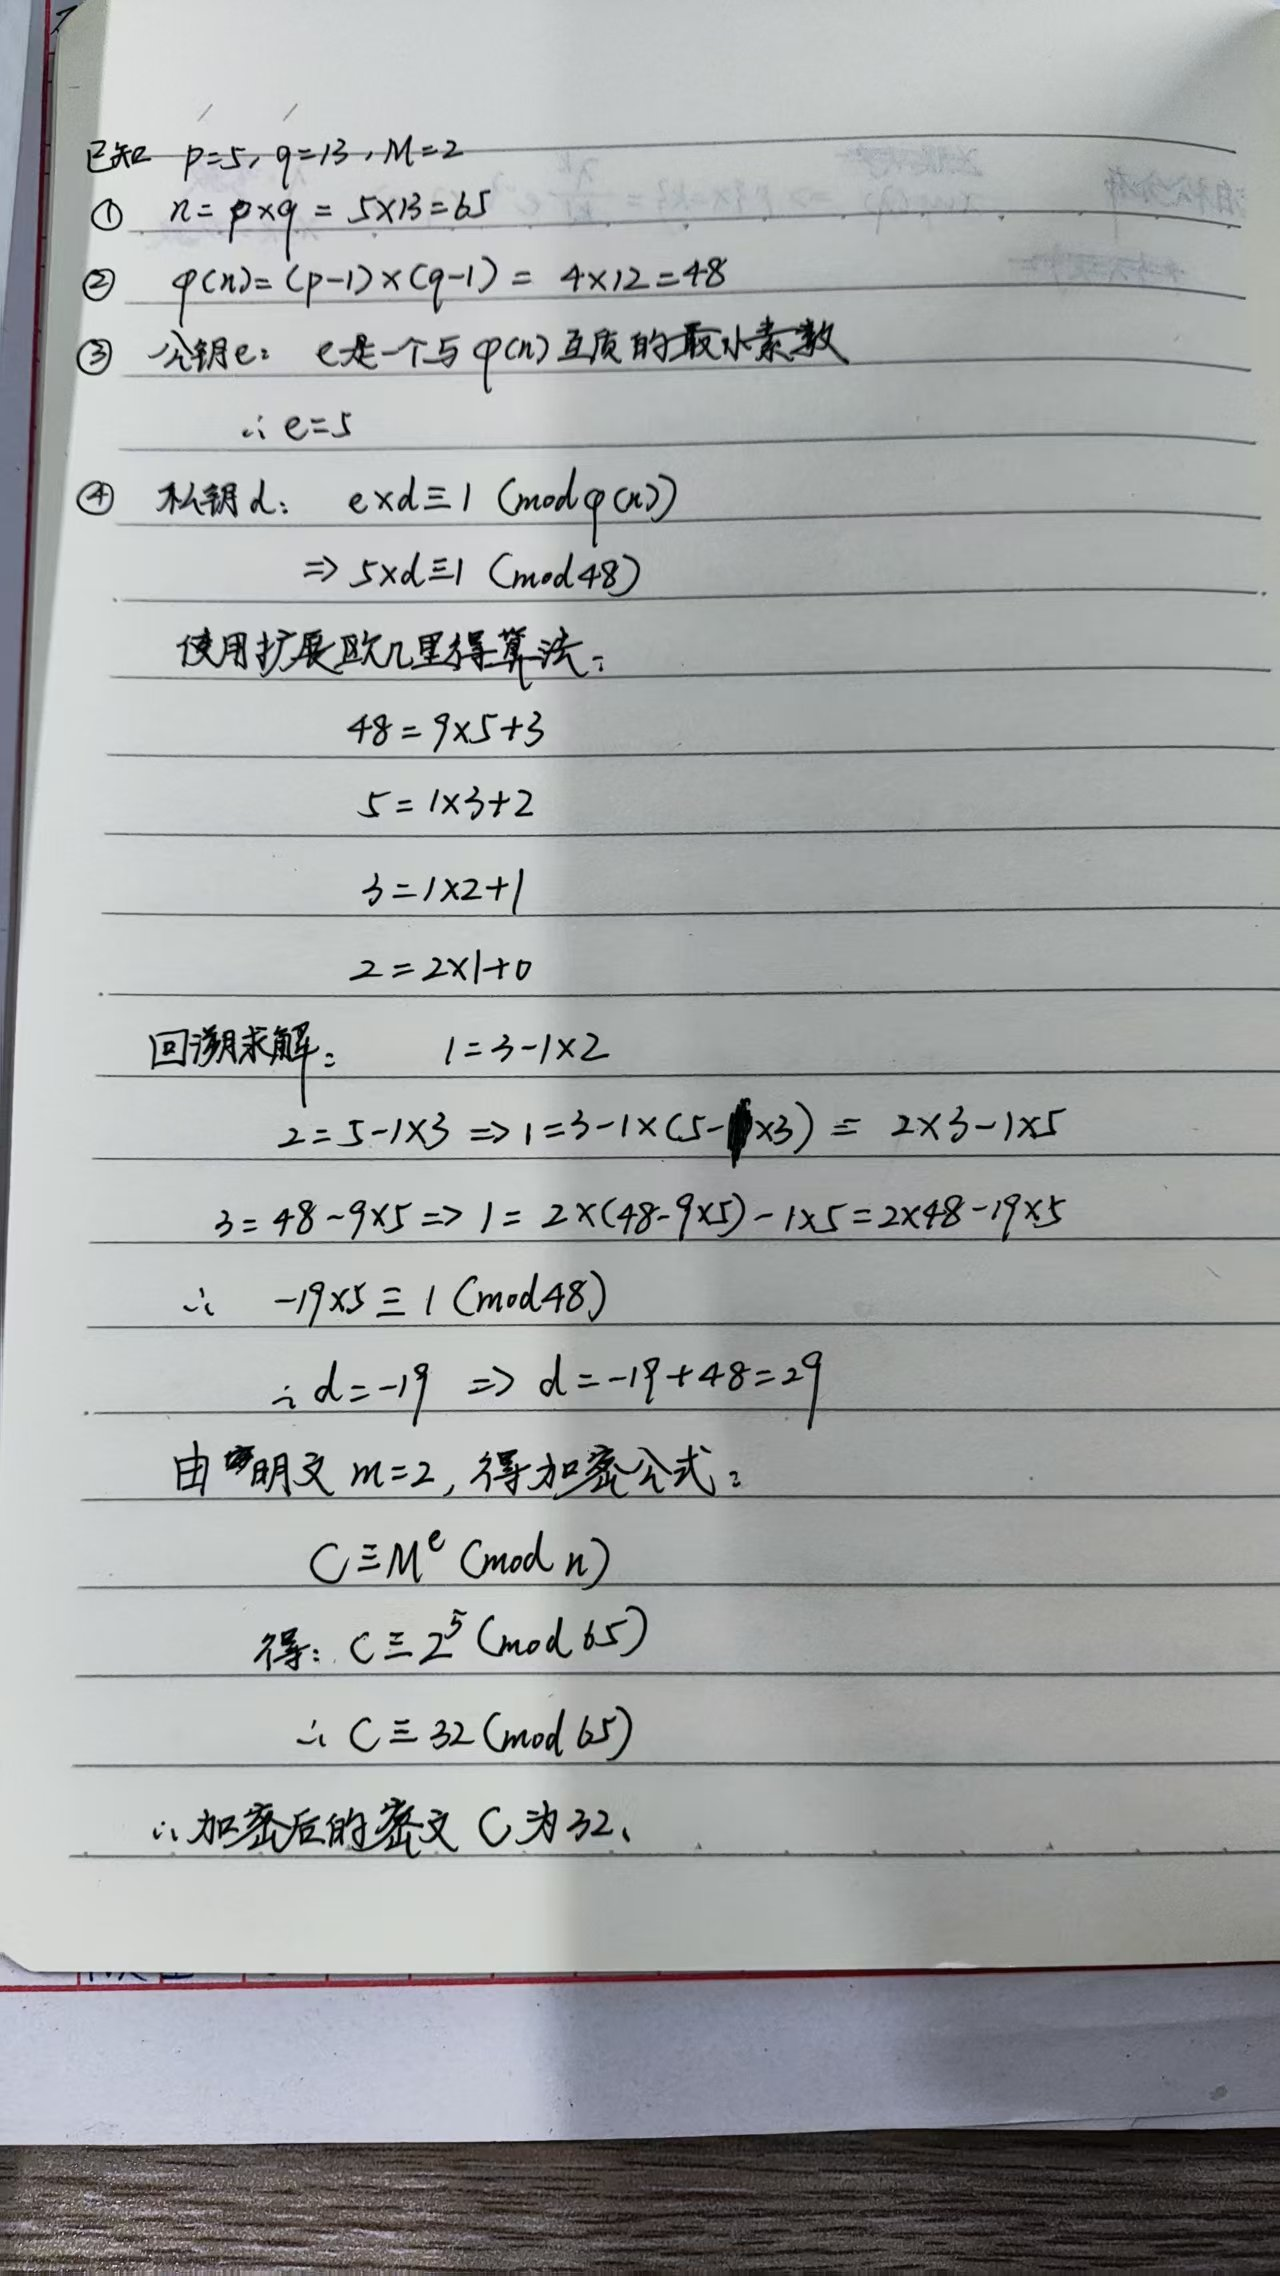 已知 p=5, q=13, M=2
① n=p×q=5×13=65
② φ(n)=(p-1)×(q-1)=4×12=48
③ 公钥e: e是一个与φ(n)互质的最小素数
∴ e=5
④ 私钥d: e×d≡1 (mod φ(n))
⇒ 5×d≡1 (mod48)
使用扩展欧几里得算法:
48=9×5+3
5=1×3+2
3=1×2+1
2=2×1+0
回溯求解: 1=3-1×2
2=5-1×3 ⇒ 1=3-1×(5-1×3) = 2×3-1×5
3=48-9×5 ⇒ 1=2×(48-9×5)-1×5=2×48-19×5
∴ -19×5≡1 (mod48)
∴ d=-19 ⇒ d=-19+48=29
由明文m=2, 得加密公式:
C≡Mᵉ (mod n)
得: C≡2⁵ (mod 65)
∴ C≡32 (mod 65)
∴ 加密后的密文C为32.